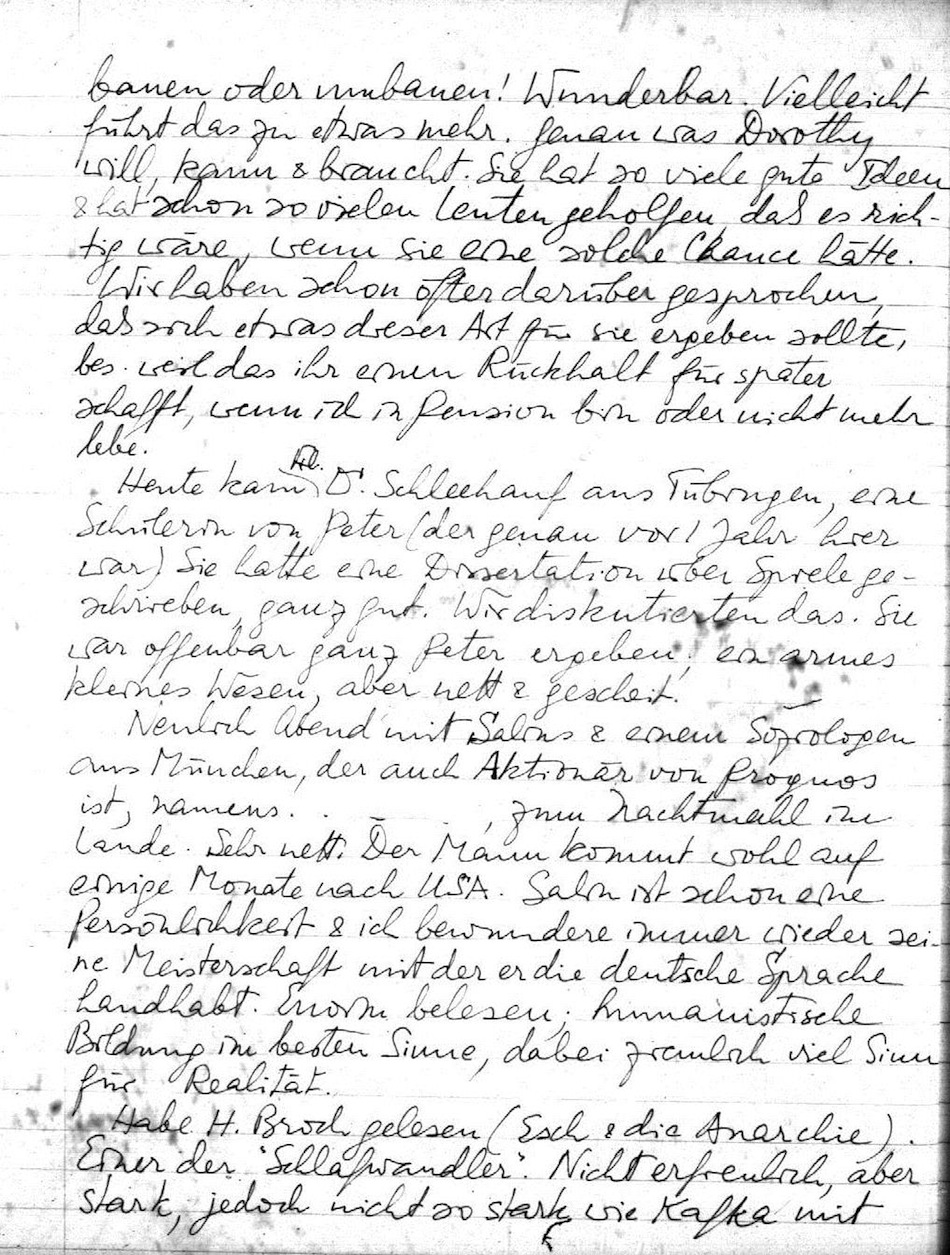 bauen oder umbauen! Wunderbar. Vielleicht
führt das zu etwas mehr. Genau was Dorothy
will, kann & braucht. Sie hat so viele gute Ideen
& hat schon so vielen Leuten geholfen, daß es rich-
tig wäre, wenn sie eine solche Chance hätte.
Wir haben schon öfter darüber gesprochen,
daß sich etwas dieser Art für sie ergeben sollte,
bes. weil das ihr einen Rückhalt für später
schafft, wenn ich in Pension bin oder nicht mehr
lebe.
Heute kam Frl. Dr. Schleehauf aus Tübingen, eine
Schülerin von Peter (der genau vor 1 Jahr hier
war) Sie hatte eine Dissertation über Spiele ge-
schrieben, ganz gut. Wir diskutierten das. Sie
war offenbar ganz Peter ergeben; ein armes
kleines Wesen, aber nett & gescheit.
Neulich Abend mit Salins & einem Soziologen
aus München, der auch Aktionär von Prognos
ist, namens . . . , zum Nachtmahl im
Lande. Sehr nett. Der Mann kommt wohl auf
einige Monate nach USA. Salin ist schon eine
Persönlichkeit & ich bewundere immer wieder sei-
ne Meisterschaft mit der er die deutsche Sprache
handhabt. Enorm belesen; humanistische
Bildung im besten Sinne, dabei ziemlich viel Sinn
für Realität.
Habe H. Broch gelesen (Esch & die Anarchie).
Einer der "Schlafwandler". Nicht erfreulich, aber
stark, jedoch nicht so stark wie Kafka mit